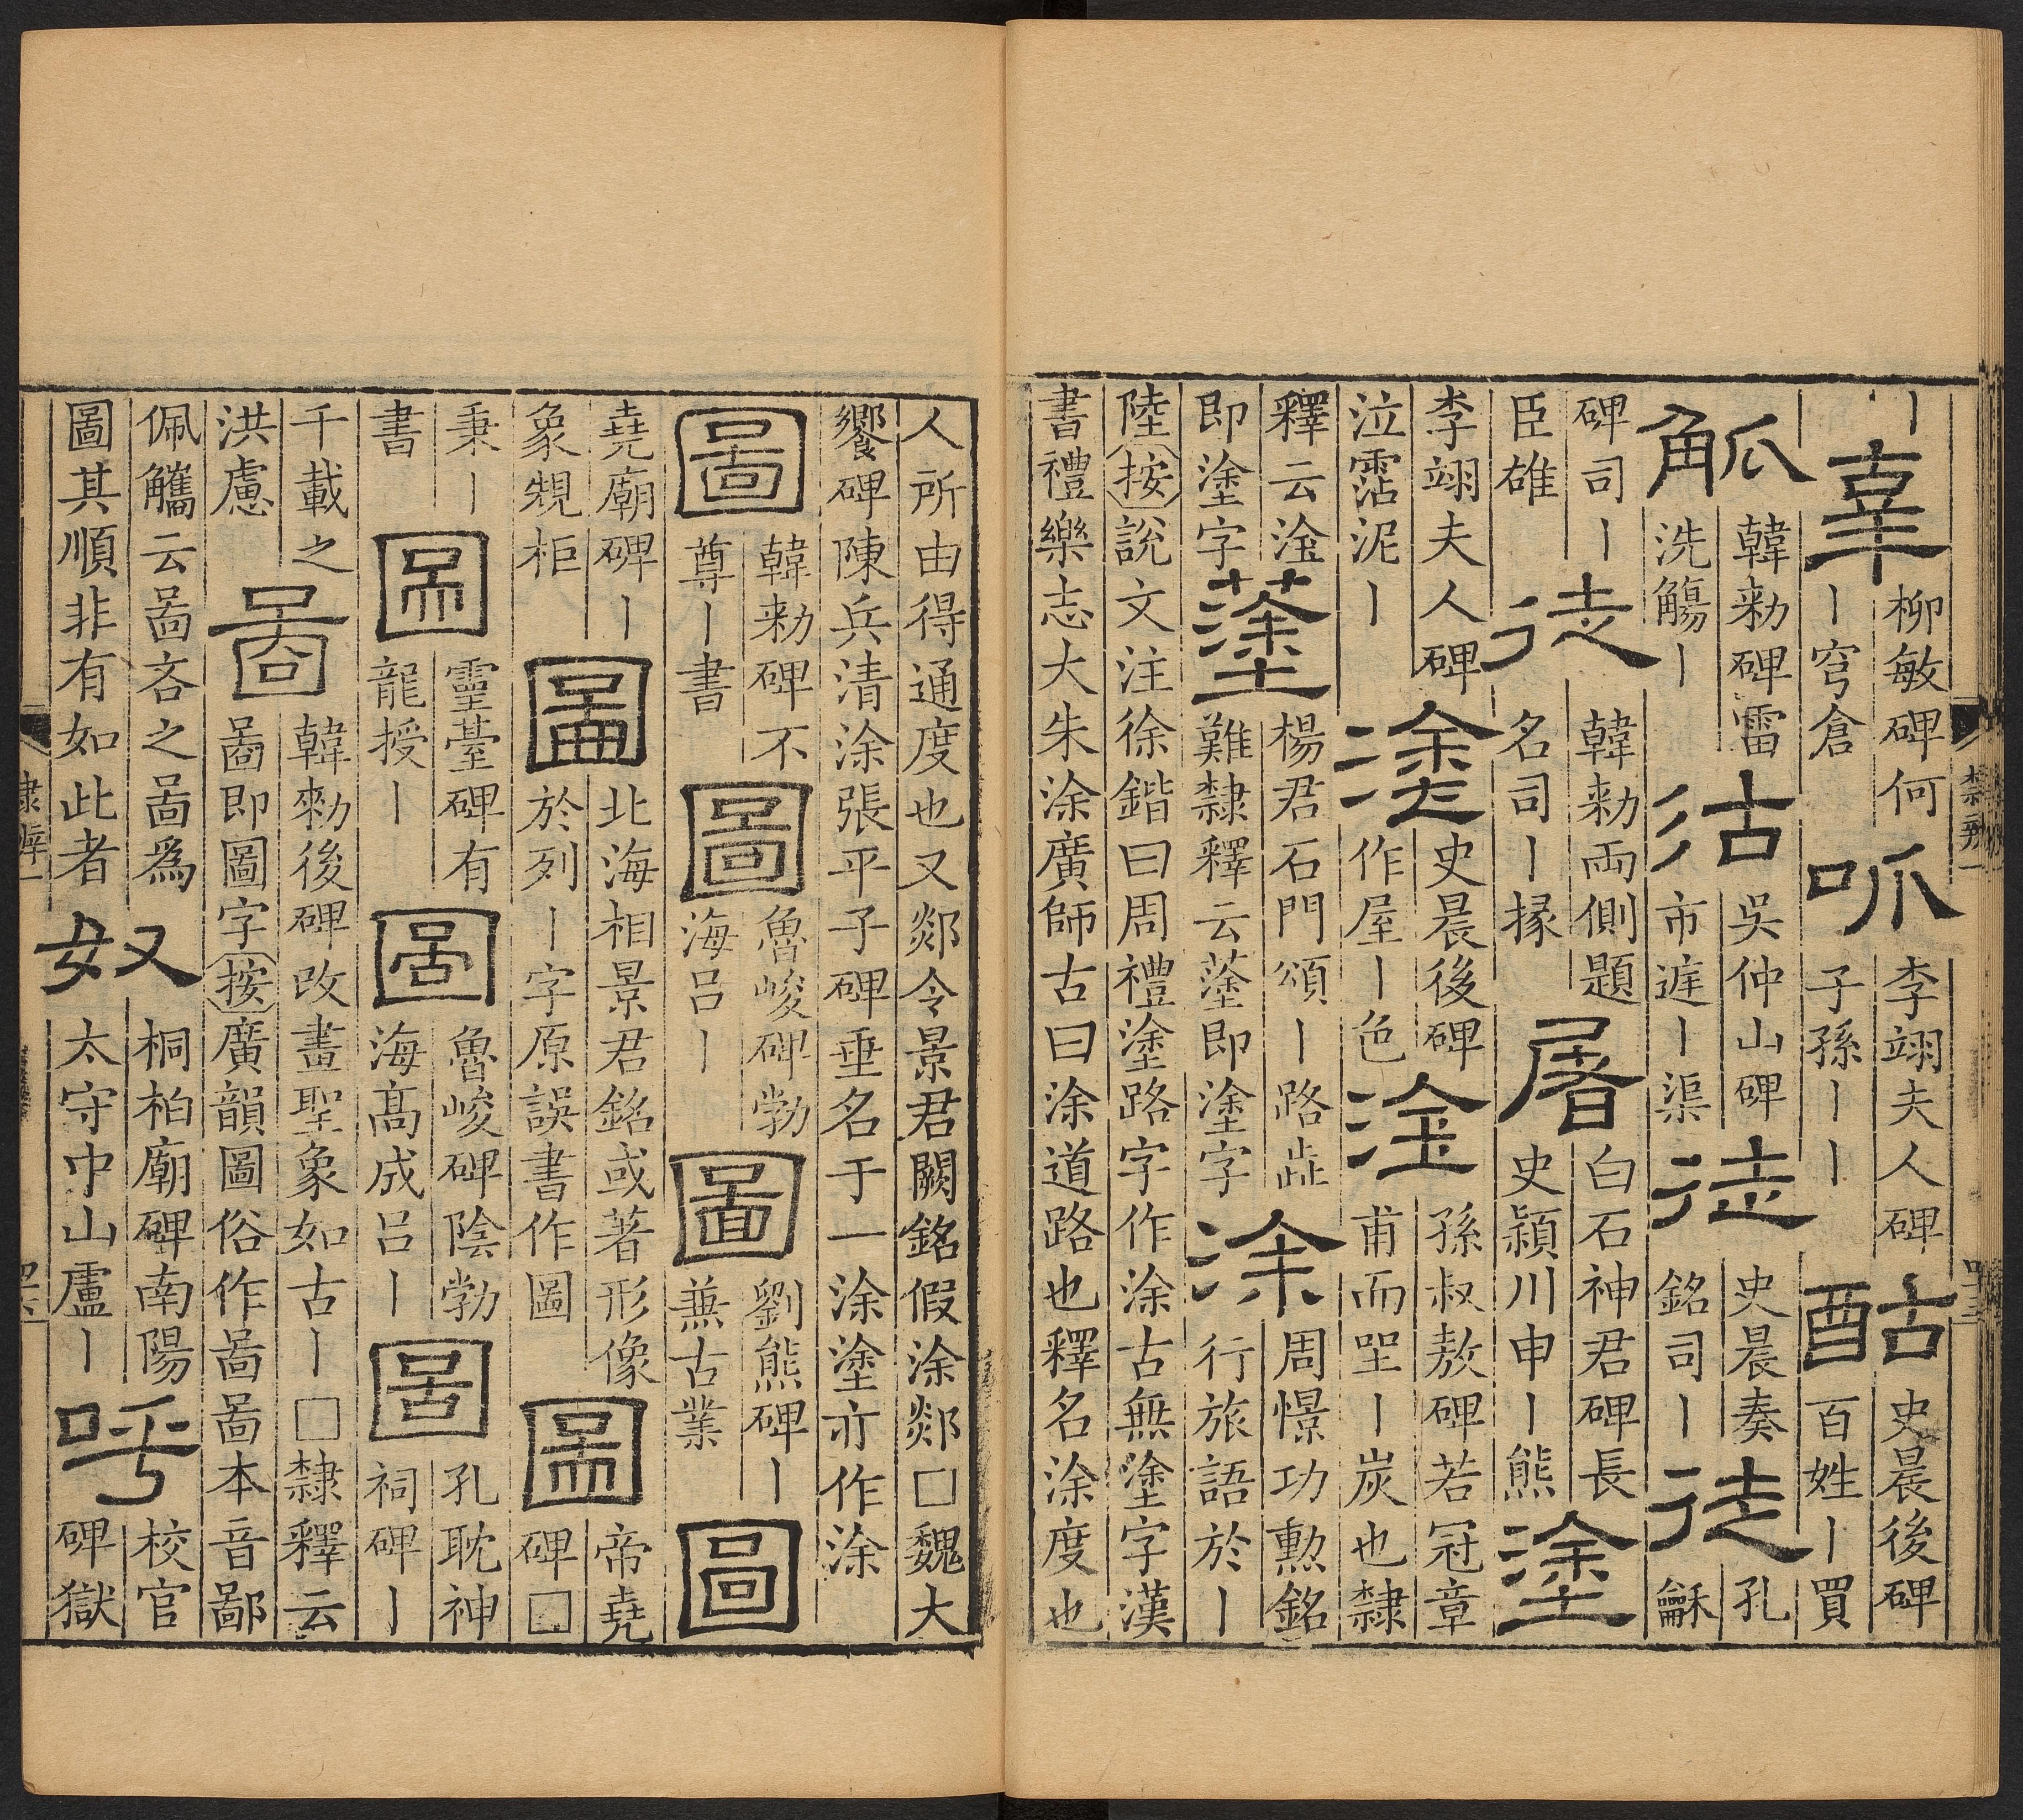 丨辜柳敏碑何丨穹倉呱李翊夫人碑子孫丨丨酤史晨後碑百姓丨買
觚韓勑碑雷洗觴丨沽吳仲山碑市庭丨渠徒史晨奏銘司丨徒孔龢
碑司丨臣雄徒韓勑兩側題名司丨掾屠白石神君碑長史潁川申丨熊塗
李翊夫人碑泣霑泥丨塗史晨後碑作屋丨色塗孫叔敖碑若冠章甫而坐丨炭也隸
釋云淦即塗字𦸆楊君石門頌丨路歮難隸釋云𦸆即塗字涂周憬功勲銘行旅語於丨
陸按說文注徐鍇曰周禮塗路字作涂古無塗字漢
書禮樂志大朱涂廣師古曰涂道路也釋名涂度也
隸辨一
人所由得通度也又郯令景君闕銘假涂郯□魏大
饗碑陳兵清涂張平子碑垂名于一涂塗亦作涂
圖韓勑碑不尊丨書圖魯峻碑勃海呂丨圖劉熊碑丨兼古業圖
堯廟碑丨象䂓柜圖北海相景君銘或著形像於列丨字原誤書作圖圖帝堯碑□
秉丨書圖靈臺碑有龍授丨圖魯峻碑陰勃海高成呂丨圖孔耽神祠碑丨
千載之洪慮啚韓勑後碑改畫聖象如古丨□隸釋云啚即圖字按廣韻圖俗作啚啚本音鄙
佩觿云啚吝之啚爲圖其順非有如此者奴桐柏廟碑南陽太守中山盧丨呼校官碑獄
隸辨一